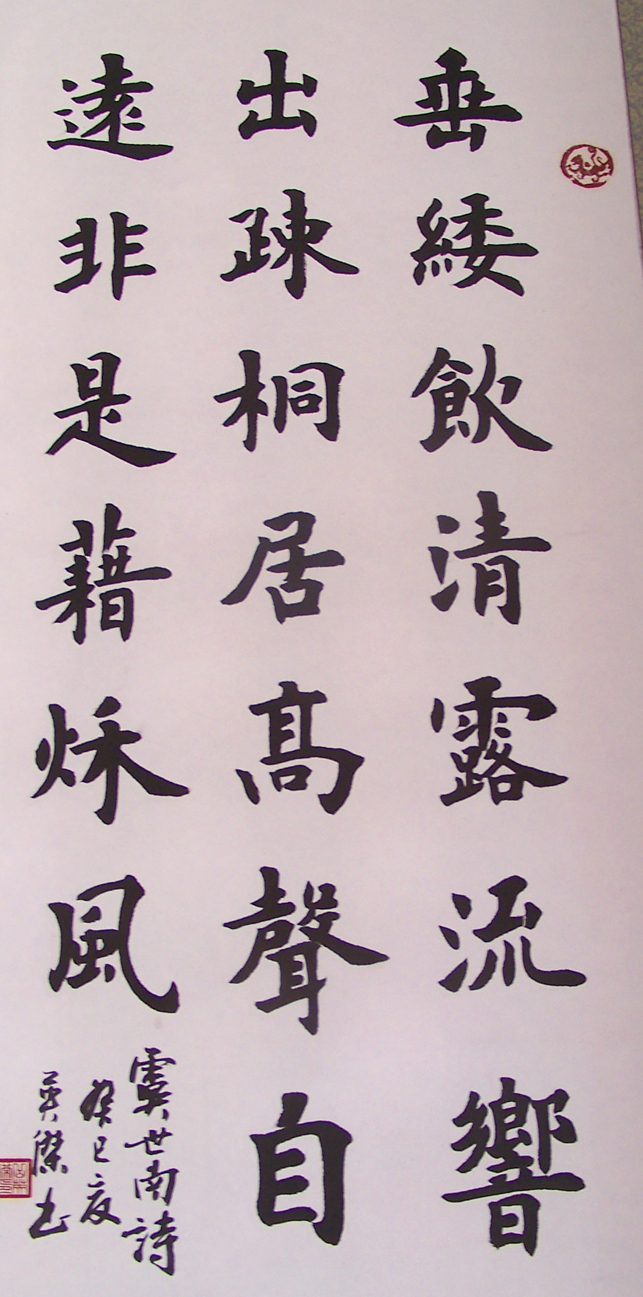 垂緌飲清露流響
出疎桐居高聲自
遠非是藉烁風
虞世南詩
癸巳夏
英傑书